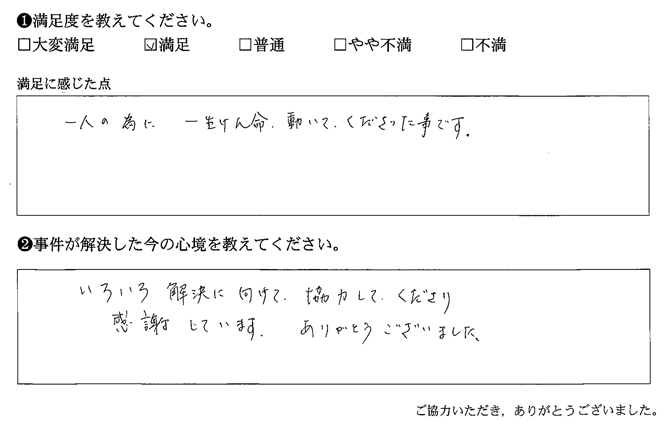 ❶満足度を教えてください。
□大変満足 ☑満足 □普通 □やや不満 □不満
満足に感じた点
一人の為に 一生けん命、動いて、くださった事です。
❷事件が解決した今の心境を教えてください。
いろいろ解決に向けて、協力して、くださり
感謝しています。 ありがとうございました。
ご協力いただき、ありがとうございました。